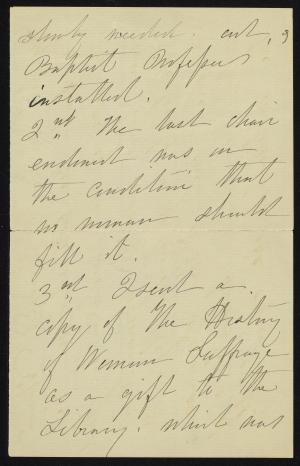 needed. out, a
Baptist Professor
installed.
2nd The last chair
endowed was on
the condition that
no woman should
fill it.
3rd I sent a
copy of The History
of Woman Suffrage
as a gift to the
Library. which was